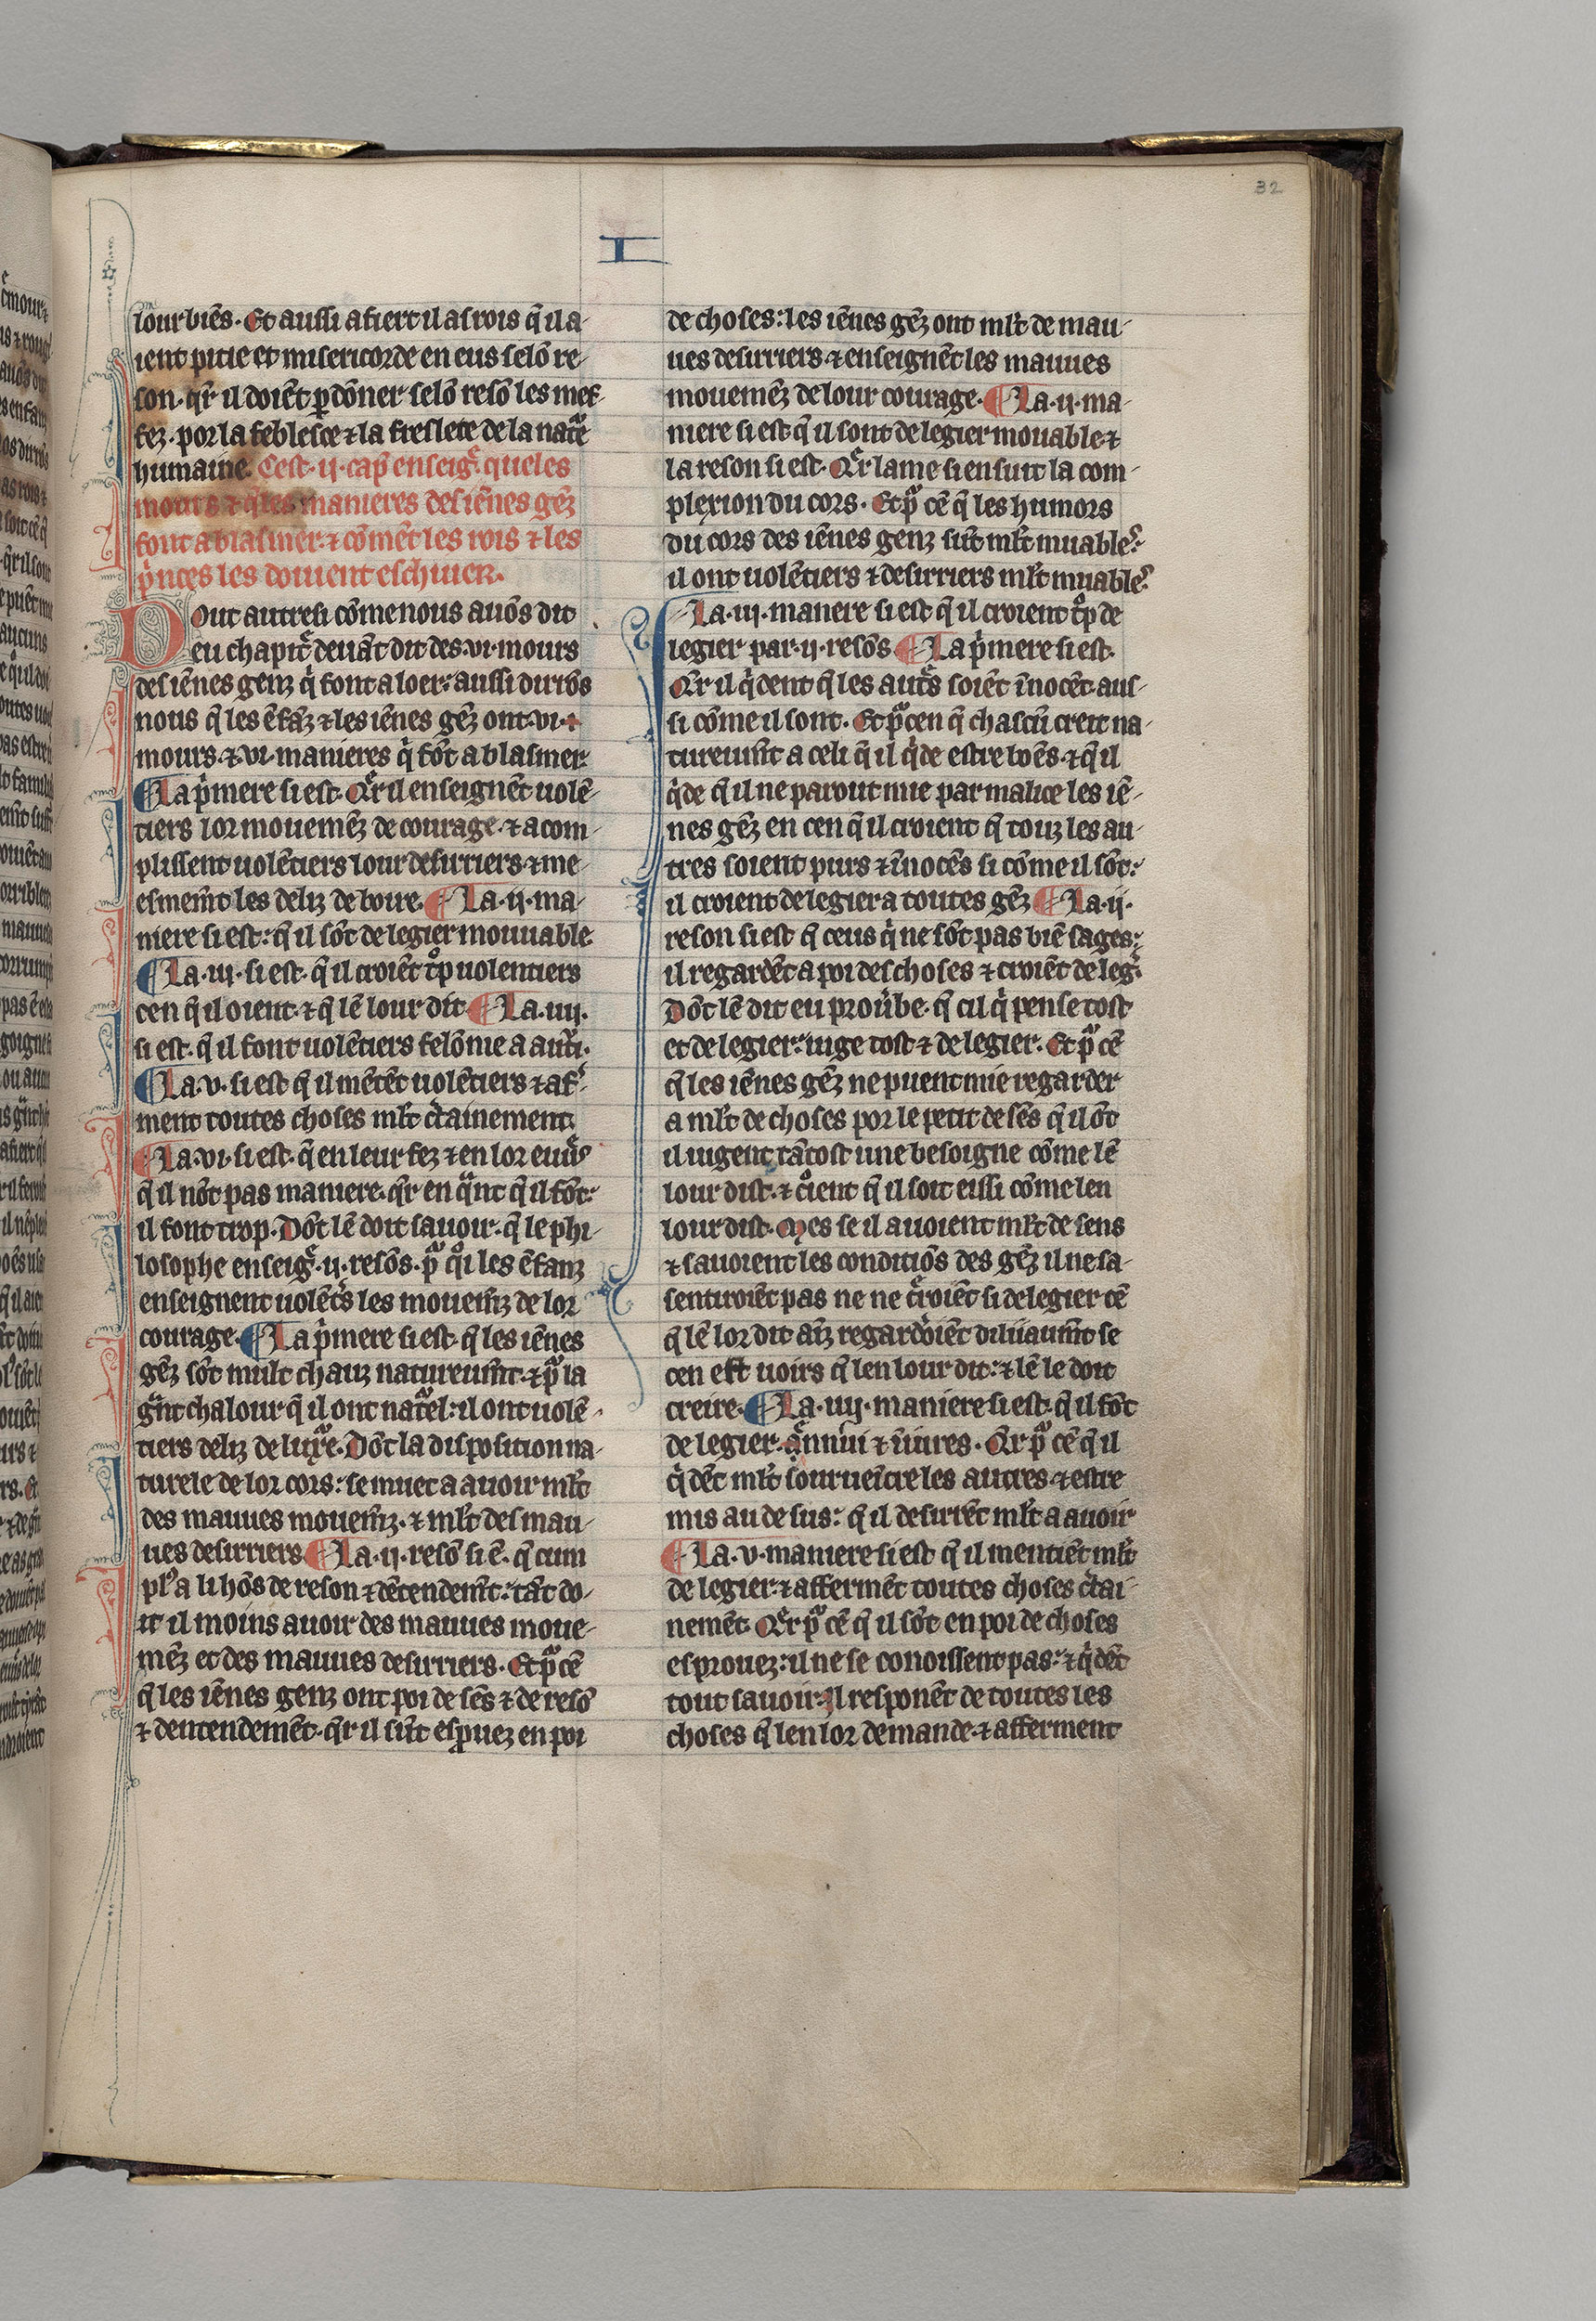 32
I
lour biēs. Et aussi afiert il as rois q̄ il a-
ient pitie et misericorde en eus selō re-
son. qͣr il doiēt ꝑdōner selō resō les mef-
fez. por la feblesce ⁊ la freslete de la natͣe
humaine. Cest. ij. cap̄ enseigͤ. queles
mours ⁊ q̄les manieres des iēnes gēz
font a blasmer. ⁊ cōmēt les rois ⁊ les
pͥnces les doiuent eschiuer.
Dout autresi cōme nous auōs dit
eu chapitͤ deuāt dit des. vi. mours
des iēnes genz qͥ font a loer: aussi dirōs
nous q̄ les ēfāz ⁊ les iēnes gēz ont. vi.
mours. ⁊ vi. manieres qͥ fōt a blasmer
¶ La pͥmere si est. Qͣr il enseignēt uolē-
tiers lor mouemēz de courage. ⁊ acom-
plissent uolētiers lour desirriers ⁊ me-
esmem̄t les deliz de boire. ¶ La. ij. ma-
niere si est: q̄ il sōt de legier mouuable
¶ La. iij. si est. q̄ il croiēt tͦp uolentiers
cen q̄ il oient. ⁊ q̄ lē lour dit. ¶ La. iiij.
si est. q̄ il font uolētiers felōnie a autͥ.
¶ La. v. si est q̄ il mētēt uolētiers ⁊ af-
ment toutes choses ml̄t c̄tainement.
¶ La. vi. si est. q̄ en leur fez ⁊ en lor euurͤs
q̄ il nōt pas maniere. qͣr en qͣnt q̄ il fōt:
il font trop. Dōt lē doit sauoir. q̄ le phi-
losophe enseigͤ. ij. resōs. pͣ qͦi les ēfanz
enseignent uolētͥs les mouem̄z de lor
courage. ¶ La pͥmere si est. q̄ les iēnes
gēz sōt mult chauz natureum̄t. ⁊ pͣ la
gͣnt chalour q̄ il ont natͣel: il ont uolē-
tiers deliz de luxͣe. Dōt la disposition na-
turele de lor cors: se muet a auoir ml̄t
des mauues mouem̄z. ⁊ ml̄t des mau-
ues desirriers. ¶ La. ij. resō si ē. q̄ cum
plꝰ a li hōs de reson ⁊ dētendem̄t: tāt do-
it il moins auoir des mauues moue-
mēz et des mauues desirriers. Et pͣ cē
q̄ les iēnes genz ont poi de sēs ⁊ de resō
⁊ dentendemēt. qͣr il sūt esꝓuez en poi
de choses: les iēnes gēz ont ml̄t de mau-
ues desirriers ⁊ enseignēt les mauues
mouemēz de lour courage. ¶ La. ij. ma-
niere si est q̄ il sont de legier mouable ⁊
la reson si est. Qͣr lame si ensuit la com-
plexion du cors. Et pͣ cē q̄ les humors
du cors des iēnes genz sūt ml̄t muableˢ:
il ont uolētiers ⁊ desirriers ml̄t muableˢ
¶ La. iij. manere si est q̄ il croient tͦp de
legier par. ij. resōs. ¶ La pͥmere si est.
Qͣr il qͥdent q̄ les autͤs soiēt īnocēt aus-
si cōme il sont. Et pͣ cen q̄ chascū creit na-
tureum̄t a celi q̄ il qͥde estre boēs. ⁊ q̄ il
qͥde q̄ il ne parout mie par malice les iē-
nes gēz en cen q̄ il croient q̄ touz les au-
tres soient purs ⁊ īnocēs si cōme il sōt:
il croient de legier a toutes gēz ¶ La. ij.
reson si est q̄ ceus qͥ ne sōt pas biē sages:
il regardēt a poi des choses ⁊ croiēt de legͥ.
Dōt lē dit eu prou̾be. q̄ cil qͥ pense tost
et de legier: iuge tost ⁊ de legier. Et pͣ cē
q̄ les iēnes gēz ne puent mie regarder
a ml̄t de choses por le petit de sēs q̄ il ōt
il iugent tātost une besoigne cōme lē
lour dist. ⁊ cͦient q̄ il soit eissi cōme len
lour dist. Mes se il auoient ml̄t de sens
⁊ sauoient les conditiōs des gēz il ne sa-
sentiroiēt pas ne ne cͤroiēt si de legier cē
q̄ lē lor dit aīz regardͦiēt diliiaum̄t se
cen est uoirs q̄ len lour dit: ⁊ lē le doit
creire. ¶ La. iiij. maniere si est. q̄ il fōt
de legier. qͣnnui ⁊ īiures. Qͣr pͣ cē q̄ il
qͥdēt ml̄t souruēicre les autres ⁊ estre
mis au desus: q̄ il desirrēt ml̄t a auoir
¶ La. v. maniere si est q̄ il mentiēt ml̄t
de legier ⁊ affermēt toutes choses c̄tai-
nemēt. Qͣr pͣ cē q̄ il sōt en poi de choses
esprouez: il ne se conoissent pas: ⁊ qͥdēt
tout sauoir. Il responēt de toutes les
choses q̄ len lor demande. ⁊ afferment